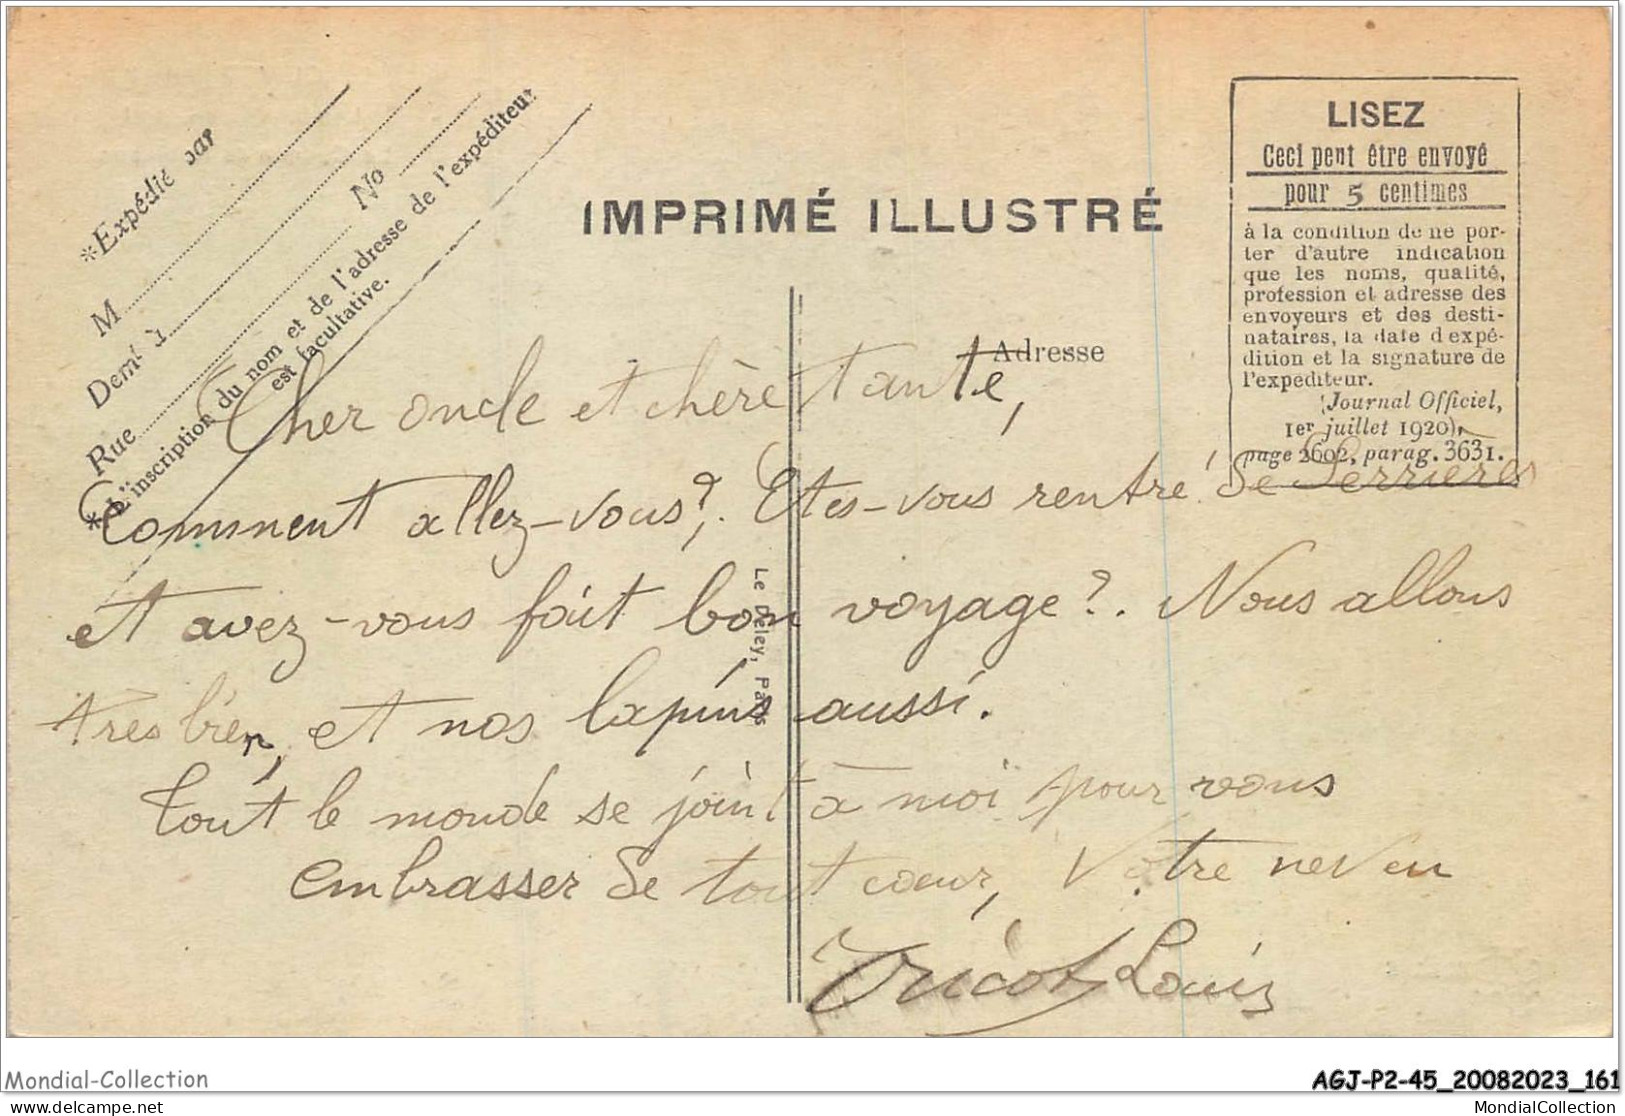 *Expédié par
M
Demt à
Rue
No
*L'inscription du nom et de l'adresse de l'expéditeur
est facultative.
IMPRIMÉ ILLUSTRÉ
LISEZ
Ceci peut être envoyé
pour 5 centimes
à la condition de ne por-
ter d'autre indication
que les noms, qualité,
profession et adresse des
envoyeurs et des desti-
nataires, la date d'expé-
dition et la signature de
l'expéditeur.
(Journal Officiel,
1er juillet 1920),
page 2602, parag. 3631.
Adresse
Cher oncle et chère tante,
Comment allez-vous?. Etes-vous rentré de Serrières
et avez-vous fait bon voyage?. Nous allons
très bien, et nos lapins aussi.
Tout le monde se joint à moi pour vous
embrasser de tout cœur, Votre neveu
Tricot Louis
Le Deley, Paris
Mondial-Collection
AGJ-P2-45_20082023_161
MondialCollection
MondialCollection